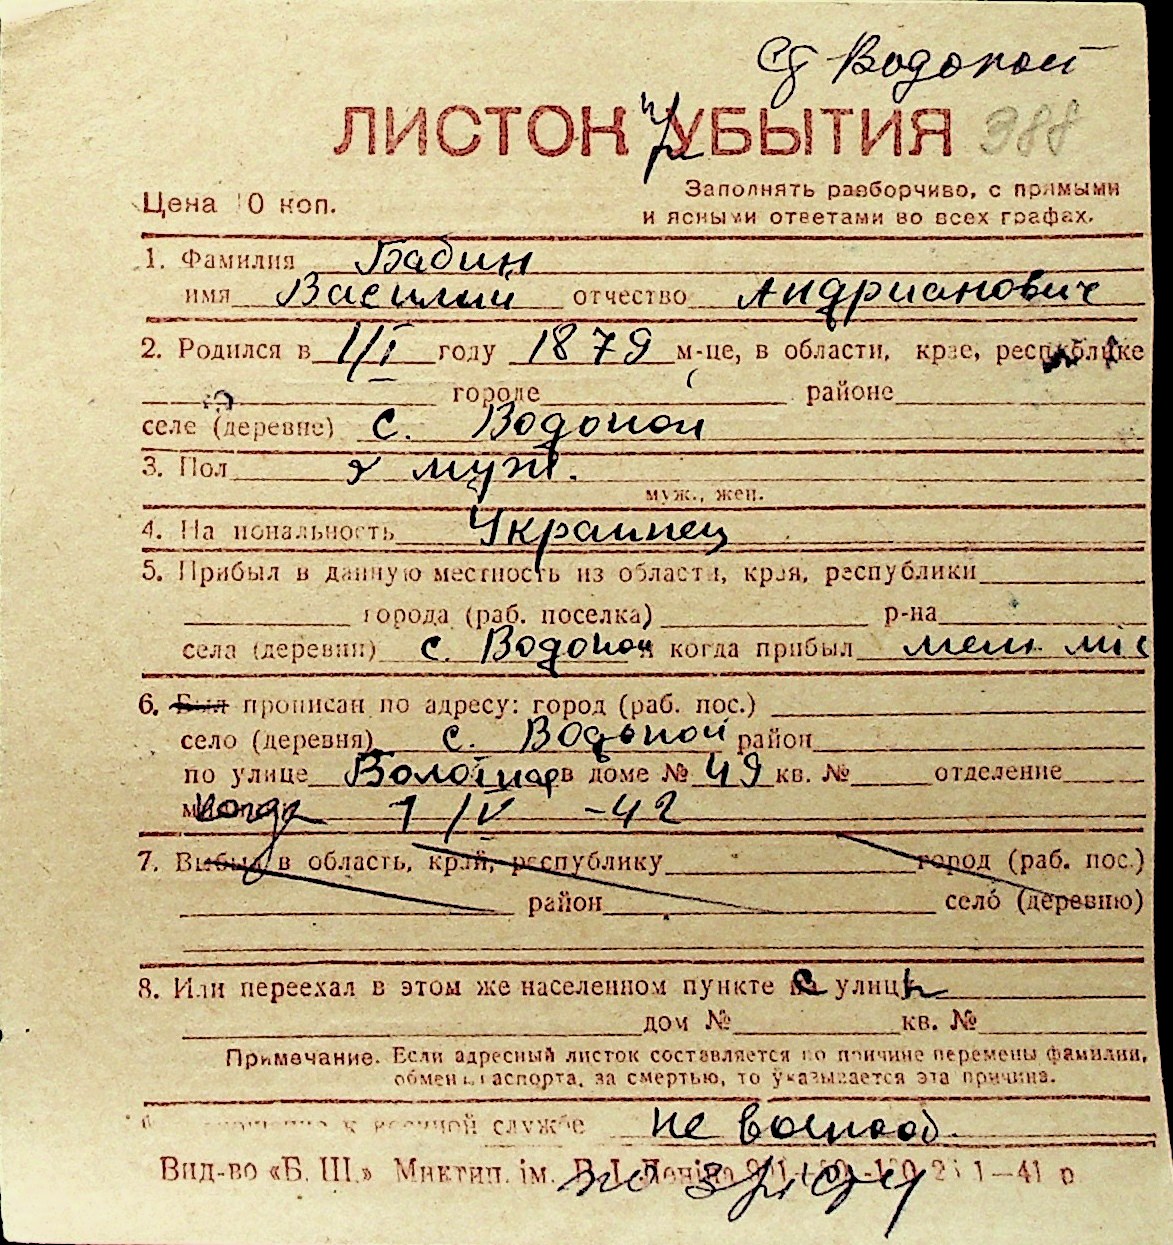 ст Водопой
ЛИСТОК УБЫТИЯ 388
Цена 10 коп.
Заполнять разборчиво, с прямыми
и ясными ответами во всех графах.
1. Фамилия Бабин
имя Василий отчество Андрианович
2. Родился в 1/I году 1879 м-це, в области, крае, республике
городе районе
селе (деревне) с. Водопой
3. Пол муж.
муж., жен.
4. Национальность Украинец
5. Прибыл в данную местность из области, края, республики
города (раб. поселка) р-на
села (деревни) с. Водопой когда прибыл
6. Был прописан по адресу: город (раб. пос.)
село (деревня) с. Водопой район
по улице в доме № 49 кв. № отделение
когда 1/IV -42
7. Выбыл в область, край, республику город (раб. пос.)
район село (деревню)
8. Или переехал в этом же населенном пункте с улицы
дом № кв. №
Примечание. Если адресный листок составляется по причине перемены фамилии,
обмен паспорта, за смертью, то указывается эта причина.
к военной службе не военнооб.
Вид-во «Б. Ш.» Миктип. ім. В. І. Леніна 1—41 р